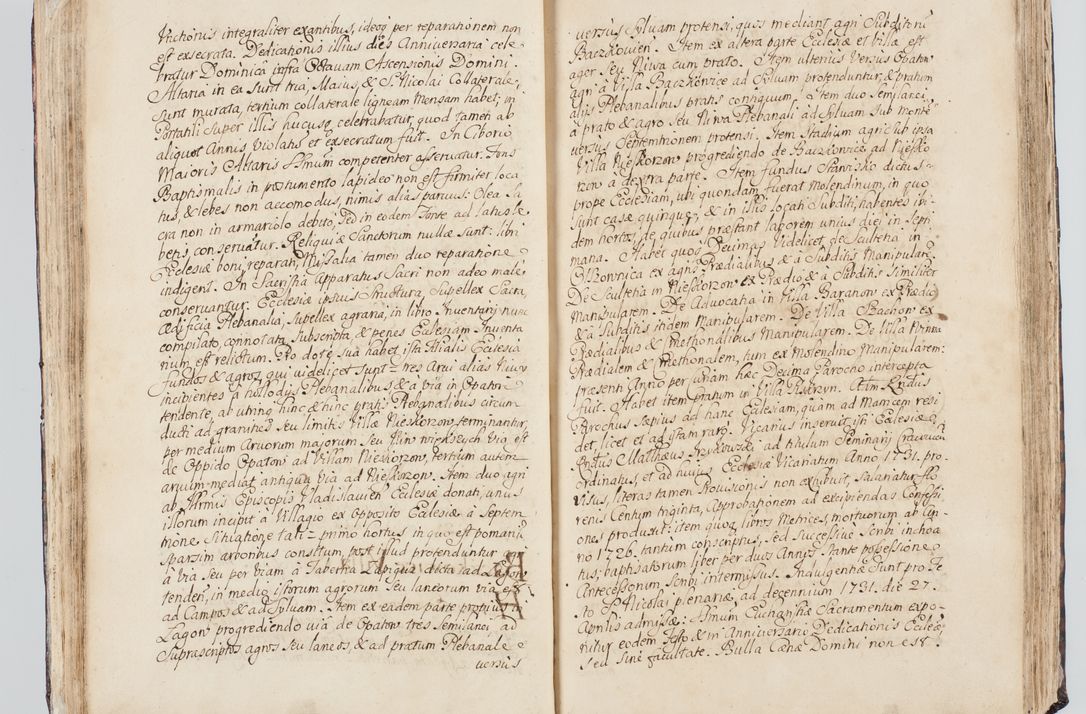 Unctionis integraliter exantibus, ideoq; per reparationem non
est exsecrata. Dedicationis illius dies Anniversaria cele
bratur Dominica infra Octavam Ascensionis Domini.
Altaria in ea sunt tria, Maius, & S. Nicolai Collaterale
sunt murata, tertium collaterale ligneam Mensam habet; in
Portatili super illis hucusq; celebrabatur, quod tamen ab
aliquot Annis Violatu et exsecratum fuit. In Ciborio
Maioris Altaris SSmum competenter asservatur. Fons
Baptismalis in postumento lapideo non est firmiter loca
tus, & lebes non accomodus, nimis alias parvus: Olea Sa
cra non in armariolo debito, sed in eodem Fonte ad latus le
betis conservatur. Reliquiæ Sanctorum nullæ sunt: libri
Ecclesiæ boni, reparati, Missalia tamen duo reparatione
indigent. In Sacristia Apparatus Sacri non adeo male
conservantur. Ecclesiæ ipsius Structura, Supellex Sacra,
Ædificia Plebanalia, Supellex agraria, in libro Inventarij nunc
compilato, connotata, Subscripta, & penes Ecclesiam Inventa
rium est relictum. Pro dote sua habet ista Filialis Ecclesia
fundos & agros, qui videlicet sunt tres Arvi alias Niwy
incipientes a hortodijs Plebanalibus & a via in Opatow
tendente, ab utrinq; hinc & hinc pratis Plebanalibus circum
ducti ad granities seu limitis Villæ Nieskorzow terminantur,
per medium Arvorum majorum seu Niw większych via est
de Oppido Opatow ad Villam Nieskorzow, tertium autem
arvum mediat antiqua via ad Nieskorzow. Item duo agri
ab Illrmis Episcopis Vladislavien Ecclesiæ donati, unus
illorum incipit à Villagio ex opposito Ecclesiæ à Septem
trione Situatione tali = primo hortus in quo est pomarium
sparsim arboribus consitum, post istud protenduntur
à via seu per viam à Taberna Łapigusz dicta ad Łagow
tenden, in medio istorum agrorum seu laneorum via est
ad Campos & ad Sylvam. Item ex eadem parte propius
Łagow progrediendo via de Opatow tres Semilanei ad
Suprascriptos agros seu laneos, & ad pratum Plebanale
versus
versus Sylvam protensi, quos mediant agri Subditorum
Baczkowien. Item ex altera parte Ecclesiæ et Villæ est
ager seu Niwa cum prato. Item ulterius versus Opatow
agri à Villa Baczkowice ad Sylvam protenduntur, & pratum
alijs Plebanalibus pratis contiguum. Item duo Semilanei
à prato & agro seu Niwa Plebanali ad Sylvam sub monte
versus Septemtrionem protensi. Item Stadium agri sub ipsa
Villa Nieskorzow progrediendo de Baczkowice ad Niesko
rzow à dextra parte. Item fundus Stawisko dictus =
prope Ecclesiam, ubi quondam fuerat Molendinum, in quo
sunt casæ quinque, & in illis locati Subditi, habentes ibi-
dem hortos, de quibus præstant laborem unius diei in Septi
mana. Habet quoq; Decimas videlicet de Scultetia in
O Bonnica ex agris Prædialibus & à Subditis Manipularem.
De Scultetia in Nieskorzow ex Prædio & à Subditis similiter
Manipularem. De Advocatia in Villa Baranow ex Prædio
& à Subditis itidem Manipularem. De Villa Stachow ex
Prædialibus & Cmethonalibus Manipularem. De Villa Worow
Prædialem & Cmethonalem, tum ex Molendino Manipularem:
præsenti Anno per Curiam hæc Decima Parocho intercepta
fuit. Habet item pratum in Villa Piskrzyn. Attm. Rndus
Parochus sæpius ad hanc Ecclesiam, quam ad Matricem resi
det, licet et ad istam raro. Vicarius inservit isti Ecclesiæ
Rndus Matthæus ad titulum Seminarij Cracovien
Ordinatus, et ad hujus Ecclesiæ Vicariatum Anno 1731. pro
visus, literas tamen Provisionis non exhibuit, Salariatur flo
renis Centum triginta, Approbationem ad excipiendas Confessi
ones produxit: item quoq; libros Metrices, mortuorum ab An
no 1726. tantum conscriptus, sed successive scribi inchoa
tus, baptisatorum liber per duos Annos stante possessione
Antecessorum scribi intermissus. Indulgentiæ Sunt pro Fe
sto S. Nicolai plenariæ, ad decennium 1731. die 27.
Aprilis admissæ: SSmum Eucharistiæ Sacramentum expo-
nitur eodem Festo & in Anniversario Dedicationis Ecclesiæ
sed sine facultate. Bulla Cœnæ Domini non est.